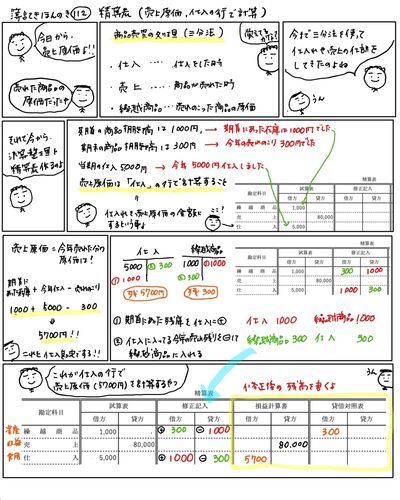 簿記きほんのき 112 精算表（売上原価，仕入の行で計算）
今日から
売上原価!!
売れた商品の
原価だったや
商品売買の処理（三分法）
・仕入 …… 仕入をした時
・売上 …… 商品が売れた時
・繰越商品 …… 売れのこった商品の原価
覚えてるかな？
今まで三分法を使って
仕入れや売上の仕訳を
してきたのよね
うん
それで今から
決算整理と
精算表作るよ
期首の商品棚卸高は1000円，→ 期首にあった在庫は1000円でした
期末の商品棚卸高は300円 → 今年の売れのこり300円でした
当期の仕入5000円 → 今年5000円仕入しました
売上原価は「仕入」の行で計算すること
仕入れを売上原価の金額に
するという事よ
ここ！
精算表
勘定科目 試算表 修正記入
借方 貸方 借方 貸方
繰越商品 1,000
売上 80,000
仕入 5,000
売上原価＝今年売れた分の
原価は！
期首に
あった在庫＋今年仕入－売れのこり
1000 + 5000 - 300
5700円!!
これを仕入勘定でする!!
仕入
5000 300
1000
ざんだか 5700円
繰越商品
1000 1000
300
ざんだか 300
精算表
勘定科目 試算表 修正記入
借方 貸方 借方 貸方
繰越商品 1,000 300 1000
売上 80,000
仕入 5,000 1000 300
① 期首にあった残庫を仕入に＋ 仕入 1000 繰越商品 1000
② 仕入に入ってる今年の売れ残りを⊖して
繰越商品に入れる
繰越商品 300 仕入 300
これが仕入の行で
売上原価（5700円）を計算するやつ
修正後の残高を書くよ
うん
精算表
勘定科目 試算表 修正記入 損益計算書 貸借対照表
借方 貸方 借方 貸方 借方 貸方 借方 貸方
資産 繰越商品 1,000 ⊕ 300 ⊖ 1000 300
収益 売上 80,000 80.000
費用 仕入 5,000 ⊕ 1000 ⊖ 300 5700